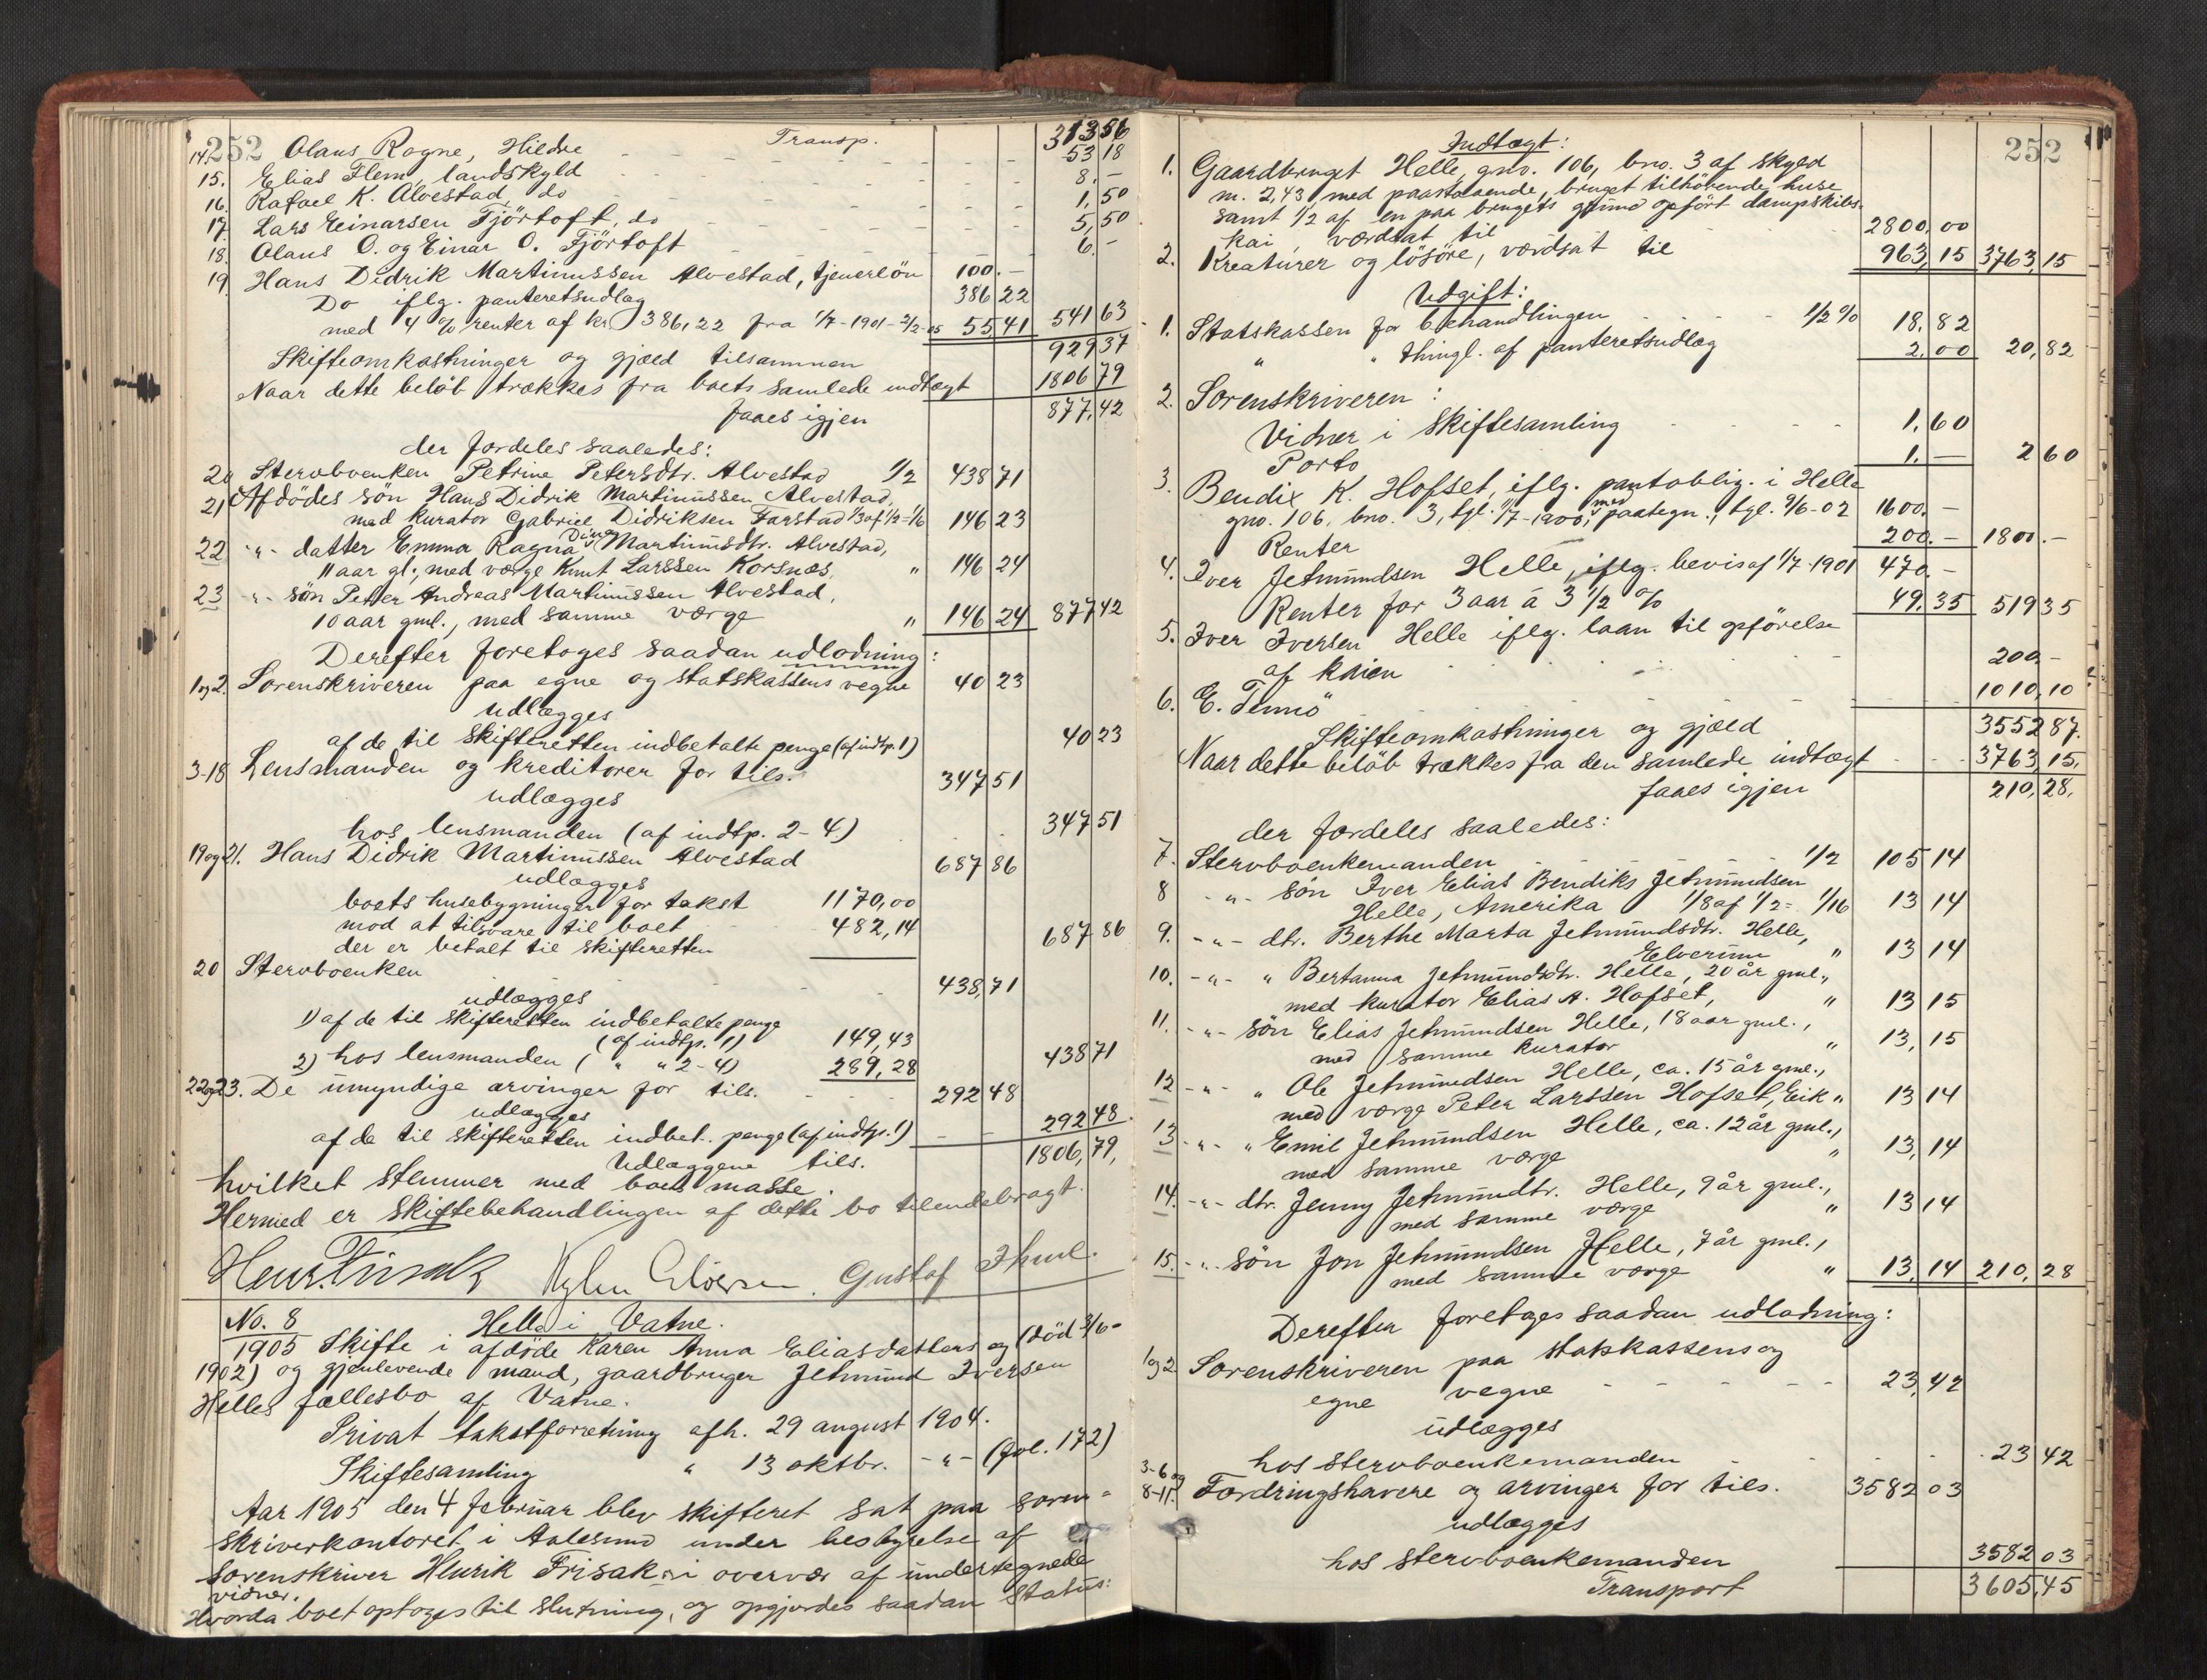 252
Transp. 313 56
14. Olaus Rogne, Hildre 53 18
15. Elias Flem, landskyld 8. -
16. Rafael K. Alvestad, do 1,50
17. Lars Einarsen Fjörtoft, do 5,50
18. Olaus O. og Einar O. Fjörtoft 6. -
19. Hans Didrik Martinussen Alvestad, tjenerlön 100. -
Do iflg. panteretsudlæg 386 22
med 4 % renter af kr 386,22 fra 1/7-1901-2/2-05 55,41 541 63
Skifteomkostninger og gjæld tilsammen 929 37
Naar dette belöb trækkes fra boets samlede indtægt 1806 79
faaes igjen 877,42
der fordeles saaledes:
20 Stervboenken Petrine Petersdtr. Alvestad 1/2 438 71
21 Afdödes sön Hans Didrik Martinussen Alvestad,
med kurator Gabriel Didriksen Farstad 1/3 af 1/2 = 1/6 146 23
22 -"- datter Emma Ragna Dina Martinusdtr. Alvestad,
11 aar gl., med værge Knut Larssen Korsnæs, " 146 24
23 -"- sön Peter Andreas Martinussen Alvestad,
10 aar gml., med samme værge " 146 24 877 42
Derefter foretages saadan udlodning:
1 og 2. Sorenskriveren paa egne og statskassens vegne 40 23
udlægges
af de til skifteretten indbetalte penge (af indtp. 1) 40 23
3-18 Lensmanden og kreditorer for tils. 347 51
udlægges
hos lensmanden (af indtp. 2-4) 347 51
19 og 21. Hans Didrik Martinussen Alvestad 687 86
udlægges
boets husebygninger for takst 1170,00
mod at tilsvare til boet 482,14 687 86
der er betalt til skifteretten
20 Stervboenken 438,71
udlægges
1) af de til skifteretten indbetalte penge
(af indtp. 1) 149,43
2) hos lensmanden ( " " 2-4) 289,28 438 71
22 og 23. De umyndige arvinger for tils. 292 48
udlægges
af de til skifteretten indbet. penge (af indtp. 1) 292 48.
Udlæggene tils. 1806,79,
hvilket stemmer med boets masse.
Hermed er skiftebehandlingen af dette bo tilendebragt.
Henr Frisak Gustaf
No. 8
1905 Helle i Vatne.
Skifte i afdöde Karen Anna Eliasdatters og (död 3/6-
1902) og gjenlevende mand, gaardbruger Jetmund Iversen
Helles fællesbo af Vatne.
Privat takstforretning afh. 29 august 1904.
Skiftesamling " 13 oktbr. -"- (fol. 172)
Aar 1905 den 4 februar blev skifteret sat paa soren-
skriverkontoret i Aalesund under bestyrelse af
sorenskriver Henrik Frisak i overvær af undertegnede
vidner.
Hvorda boet optoges til slutning, og opgjordes saadan status:
252
Indtægt:
1. Gaardbruget Helle, gno. 106, bno. 3 af skyld
m. 2,43 med paastaaende, bruget tilhörende huse
samt 1/2 af en paa brugets grund opfört dampskibs-
kai, værdsat til 2800,00
2. Kreaturer og lösöre, værdsat til 963,15 3763,15
Udgift:
1. Statskassen for behandlingen 1/2 % 18,82
" " thingl. af panteretsudlæg 2,00 20,82
2. Sorenskriveren:
Vidner i skiftesamling 1,60
Porto 1. - 2 60
3. Bendix K. Hofset, iflg. pantoblig. i Helle
gno. 106, bno. 3, tgl. 1/7-1900, med paategn., tgl. 9/6-02 1600. -
Renter 200. - 1800. -
4. Iver Jetmundsen Helle, iflg. bevis af 1/7-1901 470. -
Renter for 3 aar á 3 1/2 % 49,35 519 35
5. Iver Iversen Helle iflg. laan til opförelse
af kaien 200, -
6. E. Tennö 1010,10
Skifteomkostninger og gjæld 3552 87.
Naar dette belöb trækkes fra den samlede indtægt 3763,15.
faaes igjen 210,28.
der fordeles saaledes:
7. Stervboenkemanden 1/2 105 14
8 -"- sön Iver Elias Bendiks Jetmundsen
Helle, Amerika 1/8 af 1/2 = 1/16 13 14
9. -"- dtr. Berthe Marta Jetmundsdtr. Helle,
Elverum " 13 14
10. -"- " Bertanna Jetmundsdtr. Helle, 20 år gml.,
med kurator Elias A. Hofset, " 13 15
11. -"- sön Elias Jetmundsen Helle, 18 aar gml.,
med samme kurator " 13,15
12 -"- " Ole Jetmundsen Helle, ca. 15 år gml.,
med værge Peter Larssen Hofset, Eik " 13 14
13 -"- " Emil Jetmundsen Helle, ca. 12 år gml.,
med samme værge " 13,14
14. -"- dtr. Jenny Jetmundtr. Helle, 9 år gml.,
med samme værge " 13 14
15. -"- sön Jon Jetmundsen Helle, 7 år gml.,
med samme værge " 13,14 210,28
Derefter foretages saadan udlodning:
1 og 2. Sorenskriveren paa statskassens og
egne vegne 23,42
udlægges
hos stervboenkemanden 23 42
3-6 og
8-15 Fordringshavere og arvinger for tils. 3582 03
udlægges
hos stervboenkemanden 3582 03
Transport 3605,45